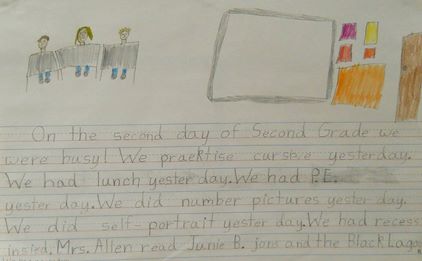 On the second day of Second Grade we
were busy! We praektise cursive yesterday.
We had lunch yesterday. We had P.E.
yesterday. We did number pictures yesterday.
We did self-portrait yesterday. We had recess
insied. Mrs. Allen read Junie B. jons and the Black Lago.